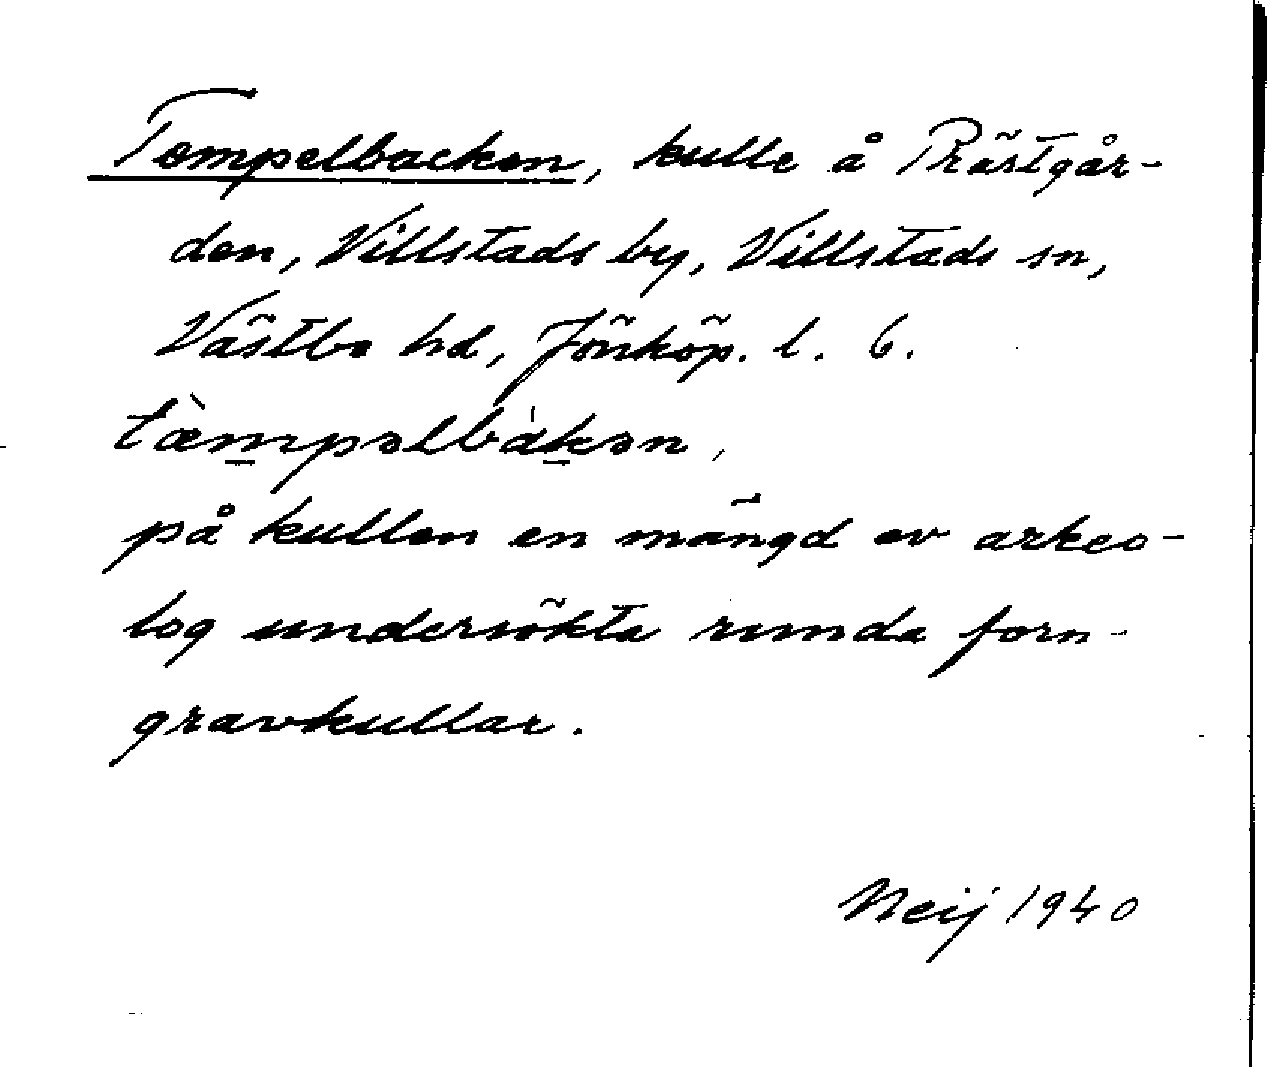 Tempelbacken, kulle å Prästgår-
den, Villstads by, Villstads sn,
Västbo hd, Jönköp. l. 6.
tæ̀mpəlbàkən,
på kullen en mängd av arkeo-
log undersökta runda forn-
gravkullar.
Neij 1940